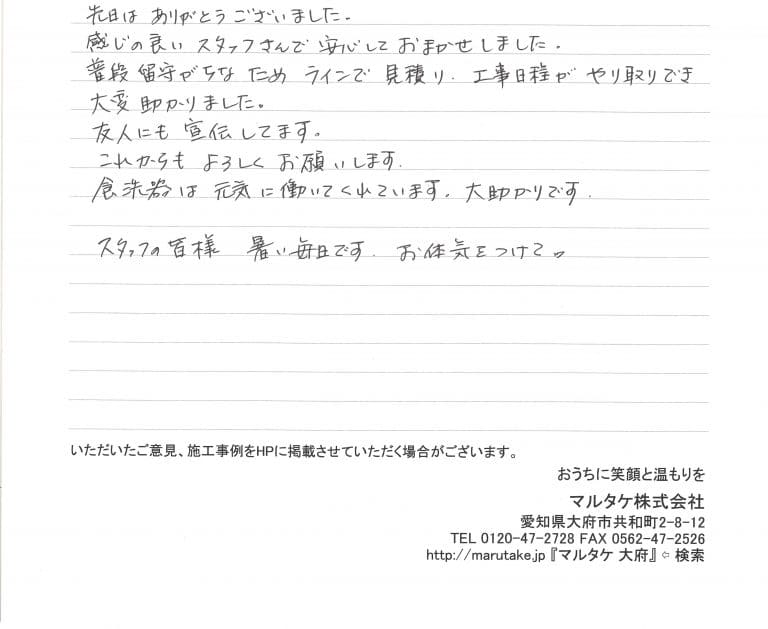 先日は ありがとうございました。
感じの良い スタッフさんで 安心して おまかせしました。
普段 留守がちな ため ラインで 見積り、工事日程が やり取りでき
大変 助かりました。
友人にも 宣伝してます。
これからも よろしく お願いします。
食洗器は 元気に 働いてくれています。大助かりです。
スタッフの皆様 暑い毎日です。お体気をつけて
いただいたご意見、施工事例をHPに掲載させていただく場合がございます。
おうちに笑顔と温もりを
マルタケ株式会社
愛知県大府市共和町2-8-12
TEL 0120-47-2728 FAX 0562-47-2526
http://marutake.jp『マルタケ 大府』⇦ 検索